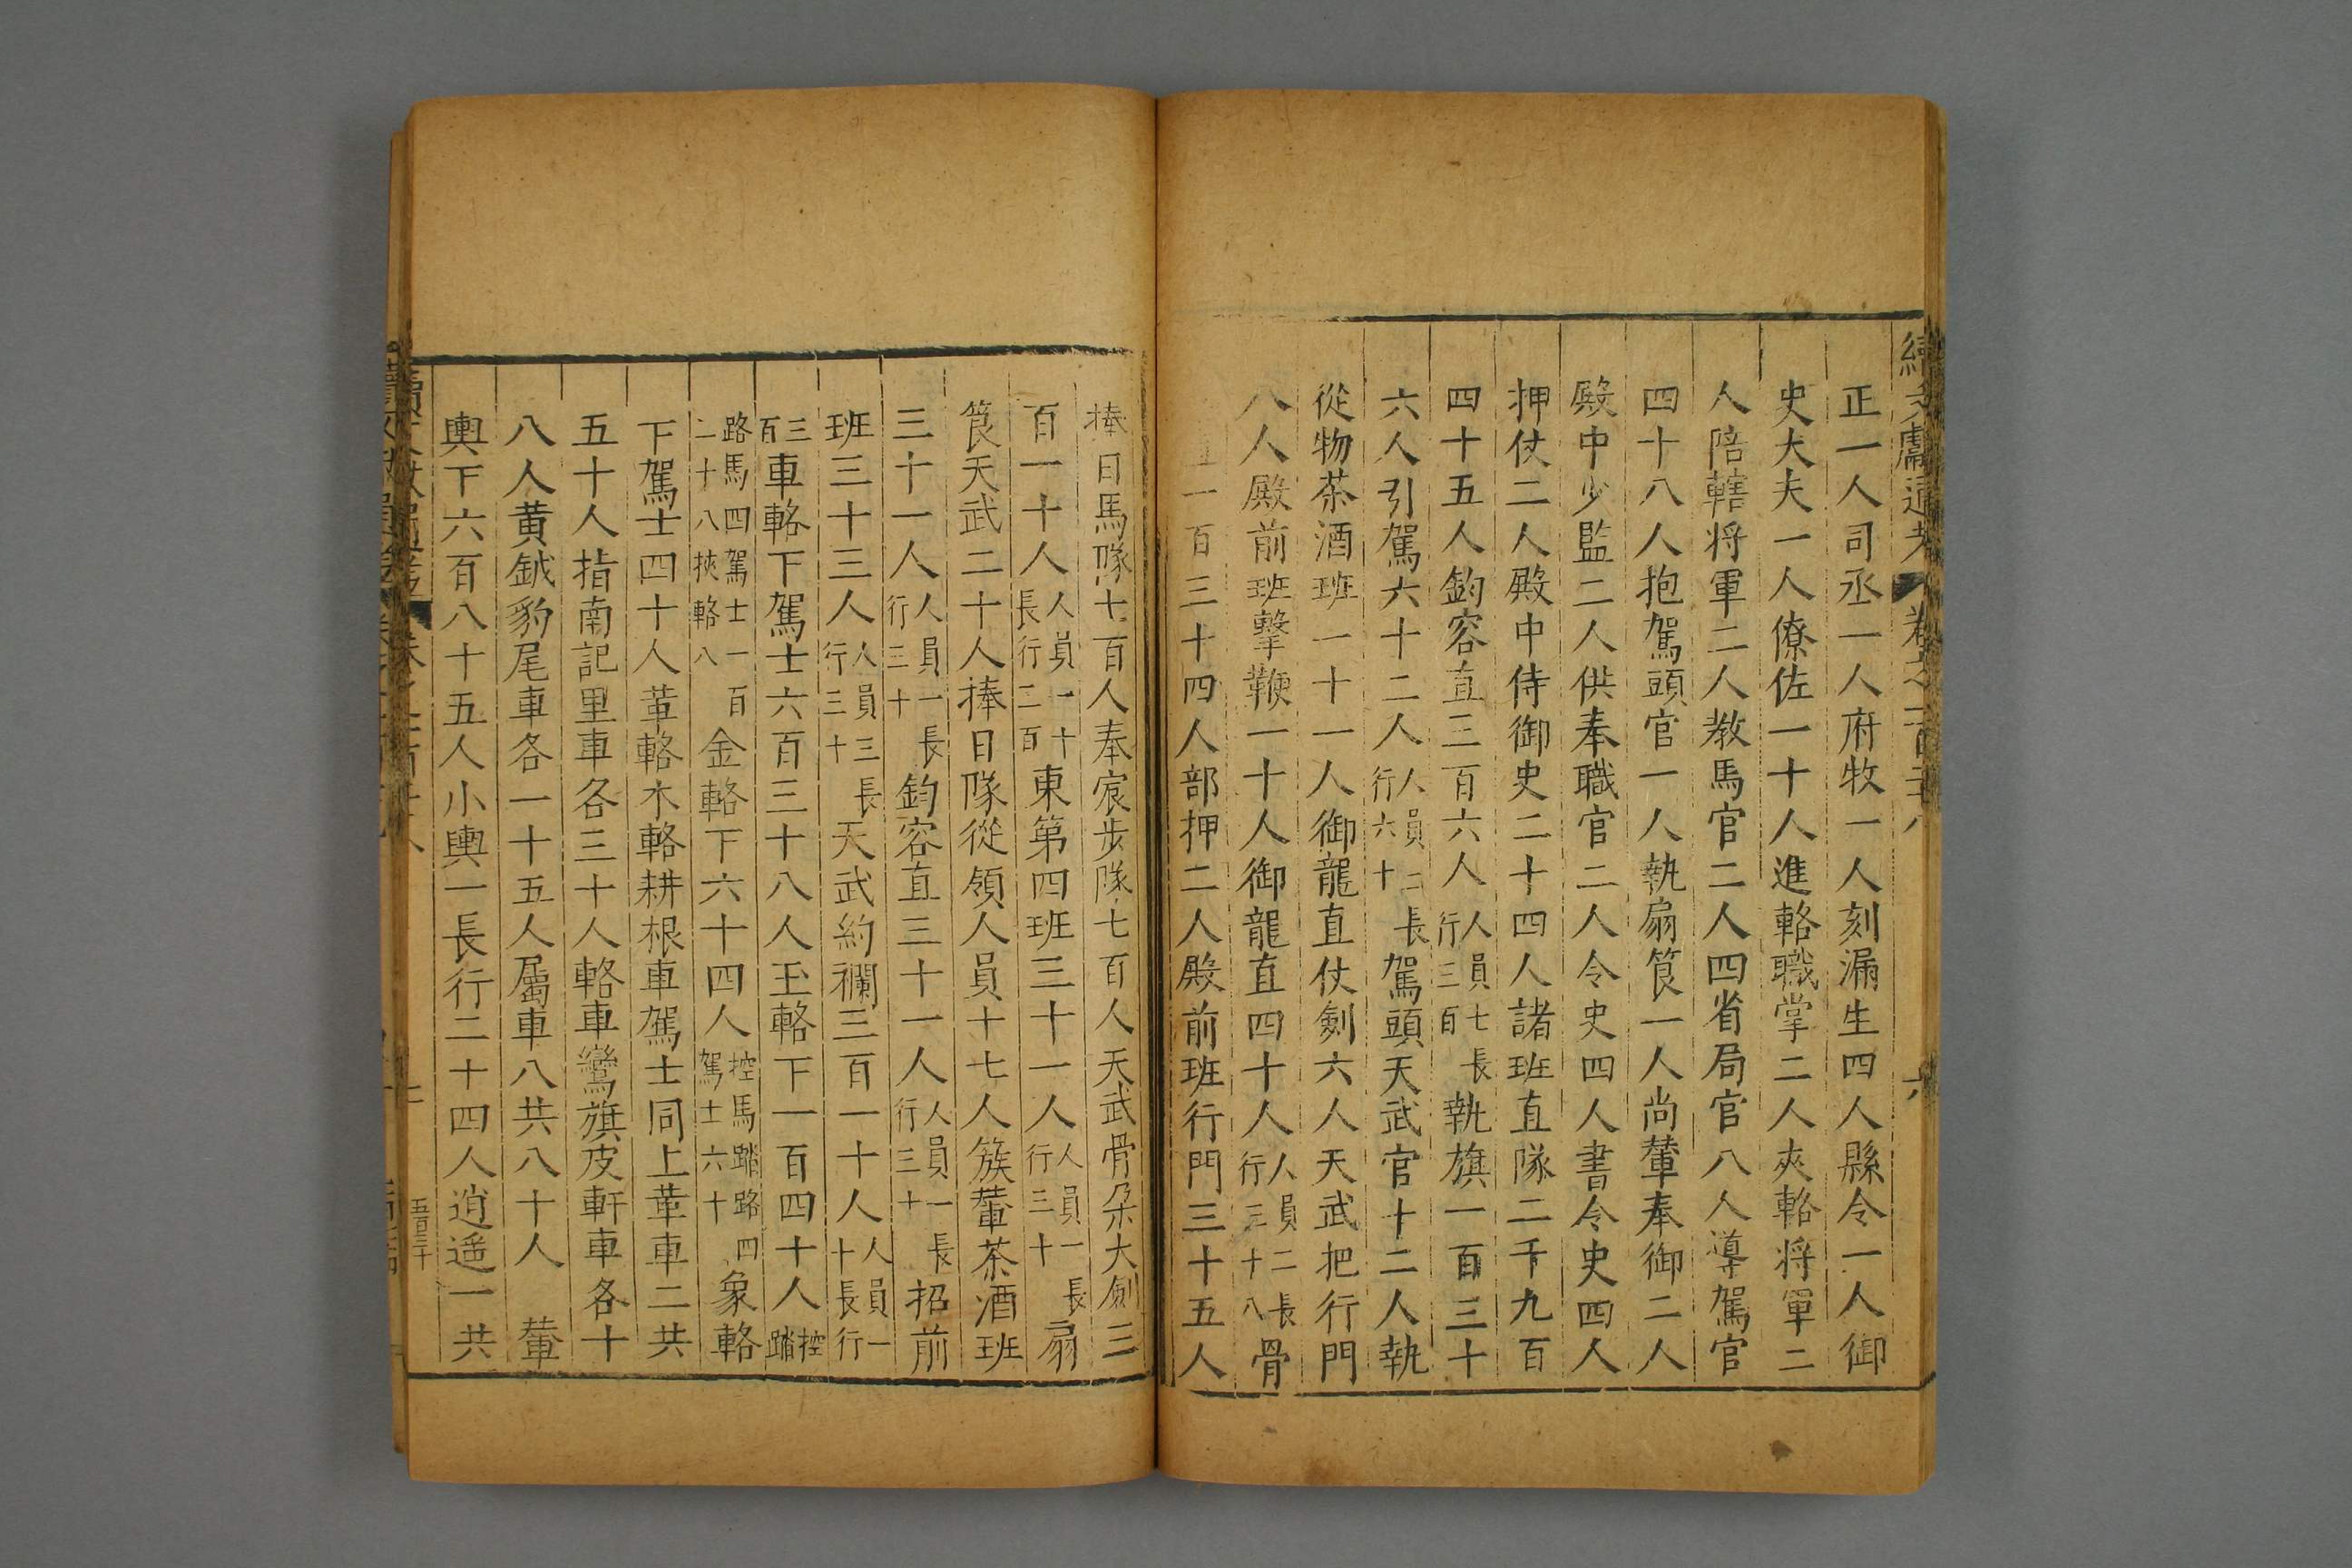 正一人司丞一人府牧一人刻漏生四人縣令一人御
史大夫一人僚佐一十人進輅職掌二人夾輅将軍二
人陪轄将軍二人教馬官二人四省局官八人導駕官
四十八人抱駕頭官一人執扇筤一人尚輦奉御二人
殿中少監二人供奉職官二人令史四人書令史四人
押仗二人殿中侍御史二十四人諸班直隊二千九百
四十五人鈞容直三百六人人員七長行三百執旗一百三十
六人引駕六十二人人員二長行六十駕頭天武官十二人執
從物茶酒班一十一人御龍直仗劍六人天武把行門
八人殿前班擊鞭一十人御龍直四十人人員二長行三十八骨
一百三十四人部押二人殿前班行門三十五人
捧日馬隊七百人奉宸步隊七百人天武骨朵大劍三
百一十人人員一十長行二百東第四班三十一人人員一長行三十扇
筤天武二十人捧日隊從領人員十七人簇輦茶酒班
三十一人人員一長行三十鈞容直三十一人人員一長行三十招前
班三十三人人員三長行三十天武約襴三百一十人人員一十長行
三百車輅下駕士六百三十八人玉輅下一百四十人控踏
路馬四駕士一百二十八挾輅八金輅下六十四人控馬踏路四駕士六十象輅
下駕士四十人革輅木輅耕根車駕士同上革車二共
五十人指南記里車各三十人輅車鸞旗皮軒車各十
八人黄鉞豹尾車各一十五人屬車八共八十人 輦
輿下六百八十五人小輿一長行二十四人逍遥一共
五百三十